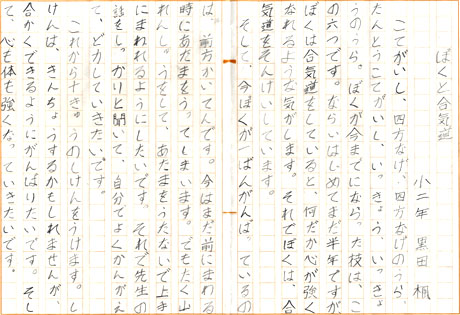 ぼくと合気道
小二年　黒田　楓
こてがいし、四方なげ、四方なげのうら、
たんとうこてがいし、いっきょう、いっきょ
うのうら。ぼくが今までにならった技は、こ
の六つです。ならいはじめてまだ半年ですが、
ぼくは合気道をしていると、何だか心が強く
なれるような気がします。それでぼくは、合
気道をそんけいしています。
そして、今ぼくが一ばんがんばっているの
は、前方かいてんです。今はまだ前にまわる
時にあたまをうってしまいます。でもたく山
れんしゅうをして、あたまをうたないで上手
にまわれるようにしたいです。それで先生の
話をしっかりと聞いて、自分でよくかんがえ
て、ど力していきたいです。
これから十きゅうのしけんをうけます。し
けんは、きんちょうするかもしれませんが、
合かくできるようにがんばりたいです。そし
て、心も体も強くなっていきたいです。